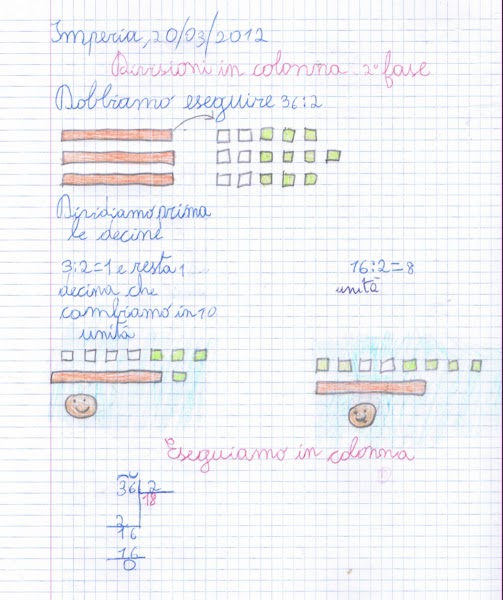 Imperia, 20/03/2012
Divisioni in colonna 2ª fase
Dobbiamo eseguire 36:2
Dividiamo prima
le decine
3:2=1 e resta 1
decina che
cambiamo in 10
unità
16:2=8
unità
Eseguiamo in colonna
36 2
18
2
16
16
0